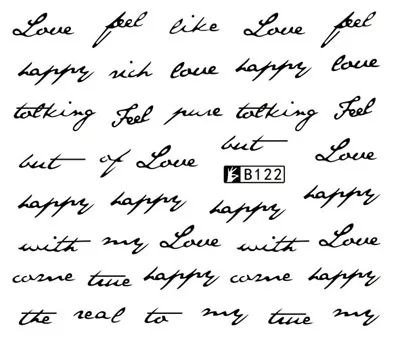 Love feel like Love feel
happy rich love happy love
tolking Feel pure tolking Feel
but of Love but Love
B122
happy happy happy happy
with my Love with Love
come true happy come happy
the real to my true my